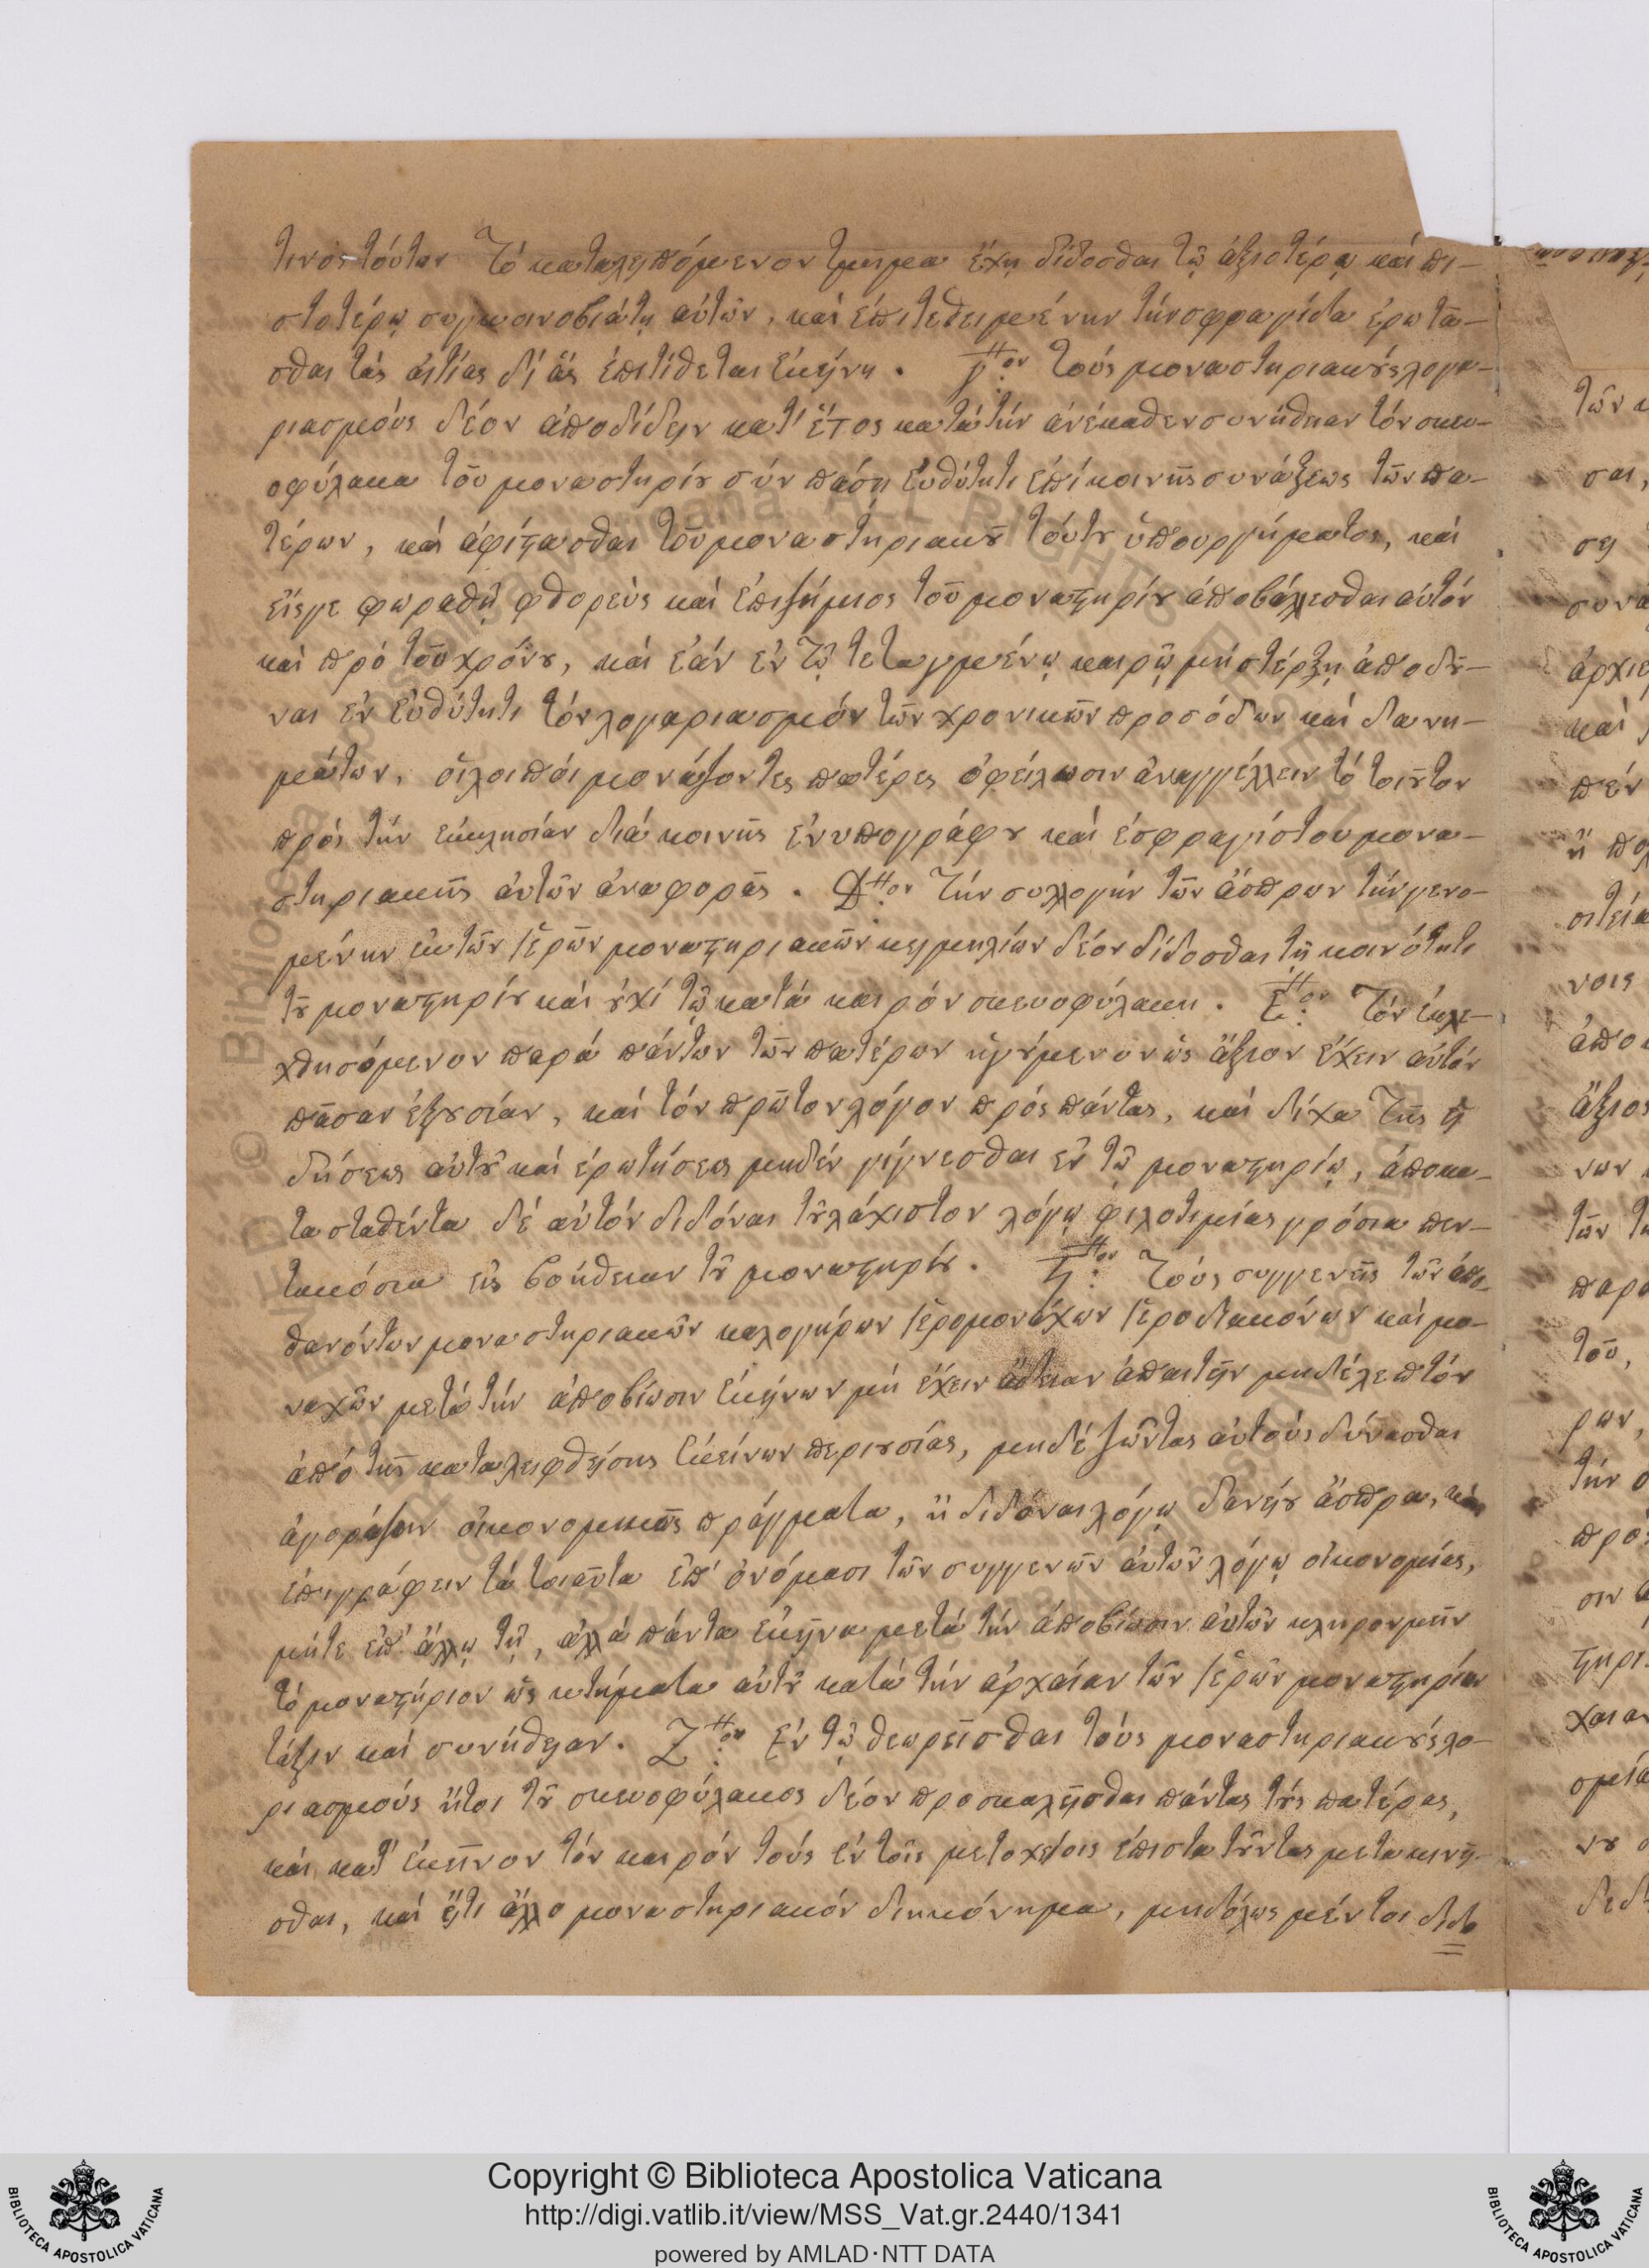 τινὸς τούτων τὸ καταλειπόμενον τμῆμα ἔχῃ δίδοσθαι τῷ ἀξιοτέρῳ καὶ πι-
στοτέρῳ συγκοινοβιάτῃ αὐτῶν, καὶ ἐπιτεθειμένην τὴν σφραγίδα ἐρωτᾶ-
σθαι τὰς αἰτίας δι' ἃς ἐπιτίθεται ἐκείνη. Γ:ον τοὺς μοναστηριακοὺς λογα-
ριασμοὺς δέον ἀποδίδειν κατ' ἔτος κατὰ τὴν ἀνέκαθεν συνήθειαν τὸν σκευ-
οφύλακα τοῦ μοναστηρίου σὺν πάσῃ εὐθύτητι ἐπὶ κοινῆς συνάξεως τῶν πα-
τέρων, καὶ ἀφίστασθαι τοῦ μοναστηριακοῦ τούτου ὑπουργήματος, καὶ
εἴ γε φωραθῇ φθορεὺς καὶ ἐπιζήμιος τοῦ μοναστηρίου ἀποβάλλεσθαι αὐτὸν
καὶ πρὸ τοῦ χρόνου, καὶ ἐὰν ἐν τῷ τεταγμένῳ καιρῷ μὴ στέρξῃ ἀποδοῦ-
ναι ἐν εὐθύτητι τὸν λογαριασμὸν τῶν χρονικῶν προσόδων καὶ δανη-
μάτων, οἱ λοιποὶ μονάζοντες πατέρες ὀφείλωσιν ἀναγγέλλειν τὸ τοιοῦτον
πρὸς τὴν ἐκκλησίαν διὰ κοινῆς ἐνυπογράφου καὶ ἐσφραγίστου μονα-
στηριακῆς αὐτῶν ἀναφορᾶς. Δ:ον τὴν συλλογὴν τῶν ἄσπρων τὴν γενο-
μένην ἐκ τῶν ἱερῶν μοναστηριακῶν κειμηλίων δέον δίδοσθαι τῇ κοινότητι
τοῦ μοναστηρίου καὶ οὐχὶ τῷ κατὰ καιρὸν σκευοφύλακι. Ε:ον Τὸν ἐκλε-
χθησόμενον παρὰ πάντων τῶν πατέρων ἡγούμενον ὡς ἄξιον ἔχειν αὐτὸν
πᾶσαν ἐξουσίαν, καὶ τὸν πρῶτον λόγον πρὸς πάντας, καὶ δίχα τῆς εἰ
δήσεως αὐτοῦ καὶ ἐρωτήσεως μηδὲν γίγνεσθαι ἐν τῷ μοναστηρίῳ, ἀποκα-
τασταθέντα δὲ αὐτὸν διδόναι τοὐλάχιστον λόγῳ φιλοτιμίας γρόσια πεν-
τακόσια εἰς βοήθειαν τοῦ μοναστηρίου. Ϛ:ον Τοὺς συγγενεῖς τῶν ἀπο-
θανόντων μοναστηριακῶν καλογήρων ἱερομονάχων ἱεροδιακόνων καὶ μο-
ναχῶν μετὰ τὴν ἀποβίωσιν ἐκείνων μὴ ἔχειν ἄδειαν ἀπαιτεῖν μηδὲ λεπτὸν
ἀπὸ τῆς καταλειφθείσης ἐκείνων περιουσίας, μηδὲ ζῶντας αὐτοὺς δύνασθαι
ἀγοράζειν οἰκονομικῶς πράγματα, ἢ διδόναι λόγῳ δανείου ἄσπρα, καὶ
ἐπιγράφειν τὰ τοιαῦτα ἐπ' ὀνόμασι τῶν συγγενῶν αὐτῶν λόγῳ οἰκονομίας,
μήτε ἐπ' ἄλλῳ τῳ, ἀλλὰ πάντα ἐκεῖνα μετὰ τὴν ἀποβίωσιν αὐτῶν κληρονομεῖν
τὸ μοναστήριον ὡς κτήματα αὐτοῦ κατὰ τὴν ἀρχαίαν τῶν ἱερῶν μοναστηρίων
τάξιν καὶ συνήθειαν. Ζ:ον Ἐν τῷ θεωρεῖσθαι τοὺς μοναστηριακοὺς λο-
ριασμοὺς ἤτοι τοῦ σκευοφύλακος δέον προσκαλεῖσθαι πάντας τοὺς πατέρας,
καὶ κατ' ἐκεῖνον τὸν καιρὸν τοὺς ἐν τοῖς μετοχείοις ἐπιστατοῦντας μετακινεῖ-
σθαι, καὶ εἴ τι ἄλλο μοναστηριακὸν διακόνημα, μηδόλως μέντοι διδο
Copyright © Biblioteca Apostolica Vaticana
http://digi.vatlib.it/view/MSS_Vat.gr.2440/1341
powered by AMLAD·NTT DATA